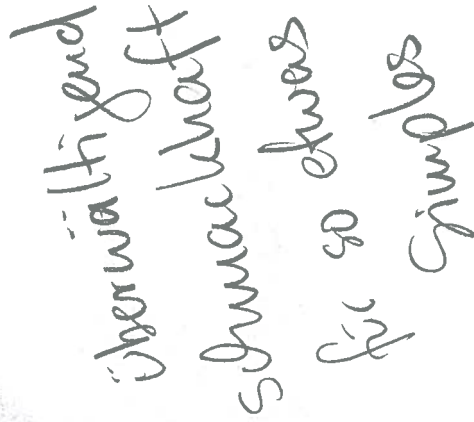 überwältigend
schmackhaft
für so etwas
Simples